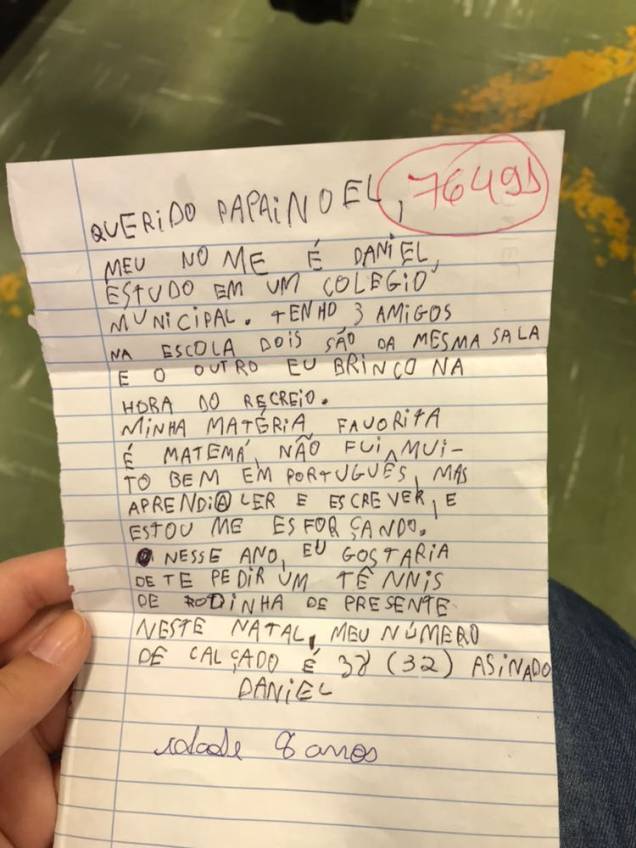 QUERIDO PAPAINOEL, 76491
MEU NOME É DANIEL,
ESTUDO EM UM COLEGIO
MUNICIPAL. TENHO 3 AMIGOS
NA ESCOLA DOIS SÃO DA MESMA SALA
E O OUTRO EU BRINCO NA
HORA DO RECREIO.
MINHA MATÉRIA FAVORITA
É MATEMÁ, NÃO FUI MUI-
TO BEM EM PORTUGUÊS, MAS
APRENDI A LER E ESCREVER, E
ESTOU ME ESFORÇANDO.
NESSE ANO, EU GOSTARIA
DE TE PEDIR UM TÊNNIS
DE RODINHA DE PRESENTE
NESTE NATAL, MEU NÚMERO
DE CALÇADO É 32 (32) ASINADO
DANIEL
idade 8 anos